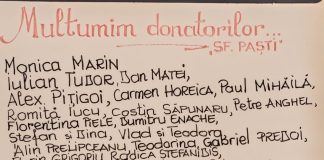 Multumim donatorilor...
"SF. PAȘTI"
Monica MARIN
Iulian TUDOR, Dan MATEI,
Alex. PIȚIGOI, Carmen HOREICA, Paul MIHĂILĂ,
Romiță Iucu, Costin SĂPUNARU, Petre ANGHEL,
Florentina PIELE, Dumitru ENACHE,
Ștefan și Dina, Vlad și Teodora,
Alin PRELIPCEANU, Teodorina, Gabriel PREDOI,
GRIGORIU, Rodica STEFANIDIS,